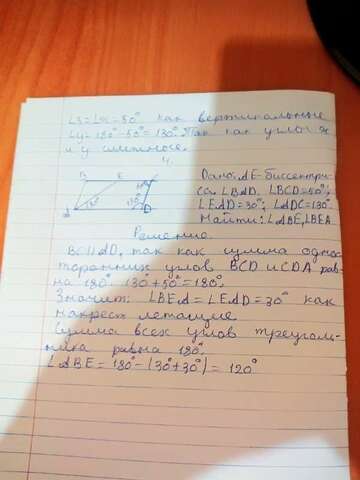 ∠z=∠x=50° как вертикальные
∠y=180°-50°=130°. Так как углы x
и y смежные.
4.
B E
30° 130° D
Дано: AE-биссектри-
са ∠BAD, ∠BCD=50°;
∠EAD=30°; ∠ADC=130°
Найти: ∠ABE, ∠BEA
Решение
BC||AD, так как сумма одно-
сторонних углов BCD и CDA рав-
на 180° 130°+50°=180°.
Значит: ∠BEA=∠EAD=30° как
накрест летащие
Сумма всех углов треуголь-
ника равна 180°
∠ABE=180°-(30°+30°)=120°